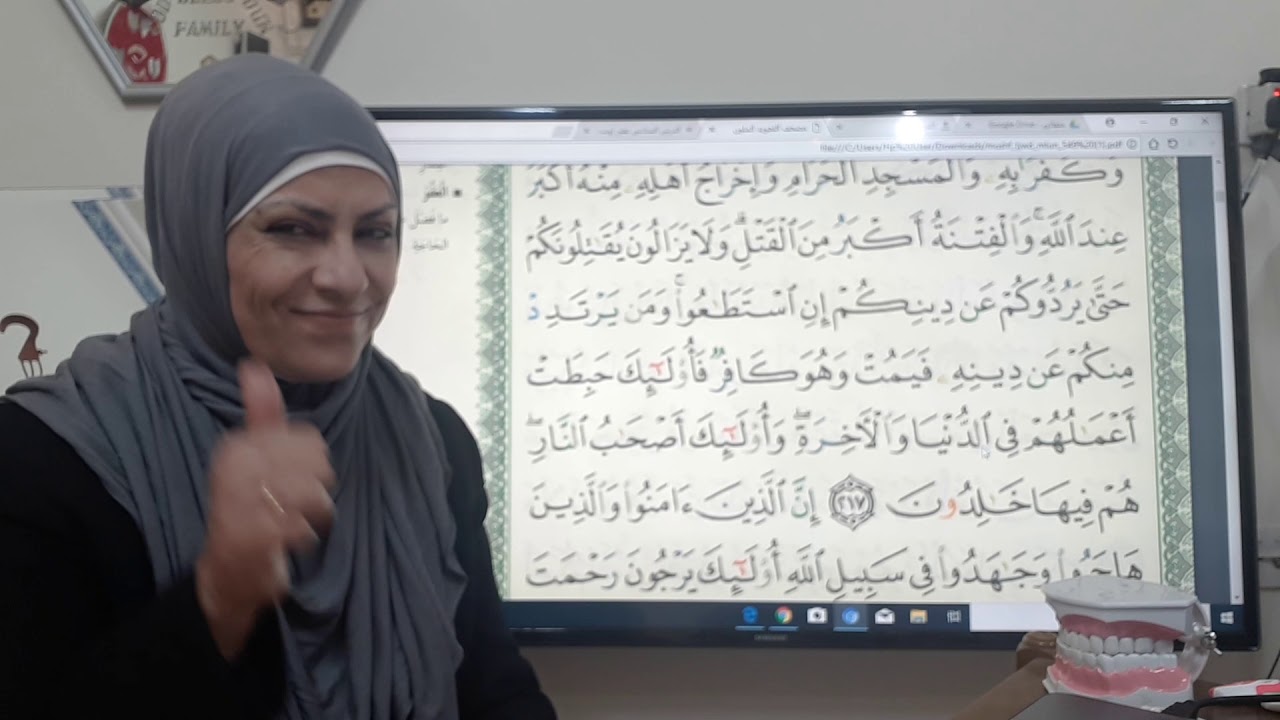 FAMILY
Google Drive
وَكُفْرٌ بِهِۦ وَٱلْمَسْجِدِ ٱلْحَرَامِ وَإِخْرَاجُ أَهْلِهِۦ مِنْهُ أَكْبَرُ
عِندَ ٱللَّهِ ۚ وَٱلْفِتْنَةُ أَكْبَرُ مِنَ ٱلْقَتْلِ ۗ وَلَا يَزَالُونَ يُقَـٰتِلُونَكُمْ
حَتَّىٰ يَرُدُّوكُمْ عَن دِينِكُمْ إِنِ ٱسْتَطَـٰعُوا۟ ۚ وَمَن يَرْتَدِدْ
مِنكُمْ عَن دِينِهِۦ فَيَمُتْ وَهُوَ كَافِرٌ فَأُو۟لَـٰٓئِكَ حَبِطَتْ
أَعْمَـٰلُهُمْ فِى ٱلدُّنْيَا وَٱلْـَٔاخِرَةِ ۖ وَأُو۟لَـٰٓئِكَ أَصْحَـٰبُ ٱلنَّارِ ۖ
هُمْ فِيهَا خَـٰلِدُونَ ٢١٧ إِنَّ ٱلَّذِينَ ءَامَنُوا۟ وَٱلَّذِينَ
هَاجَرُوا۟ وَجَـٰهَدُوا۟ فِى سَبِيلِ ٱللَّهِ أُو۟لَـٰٓئِكَ يَرْجُونَ رَحْمَتَ